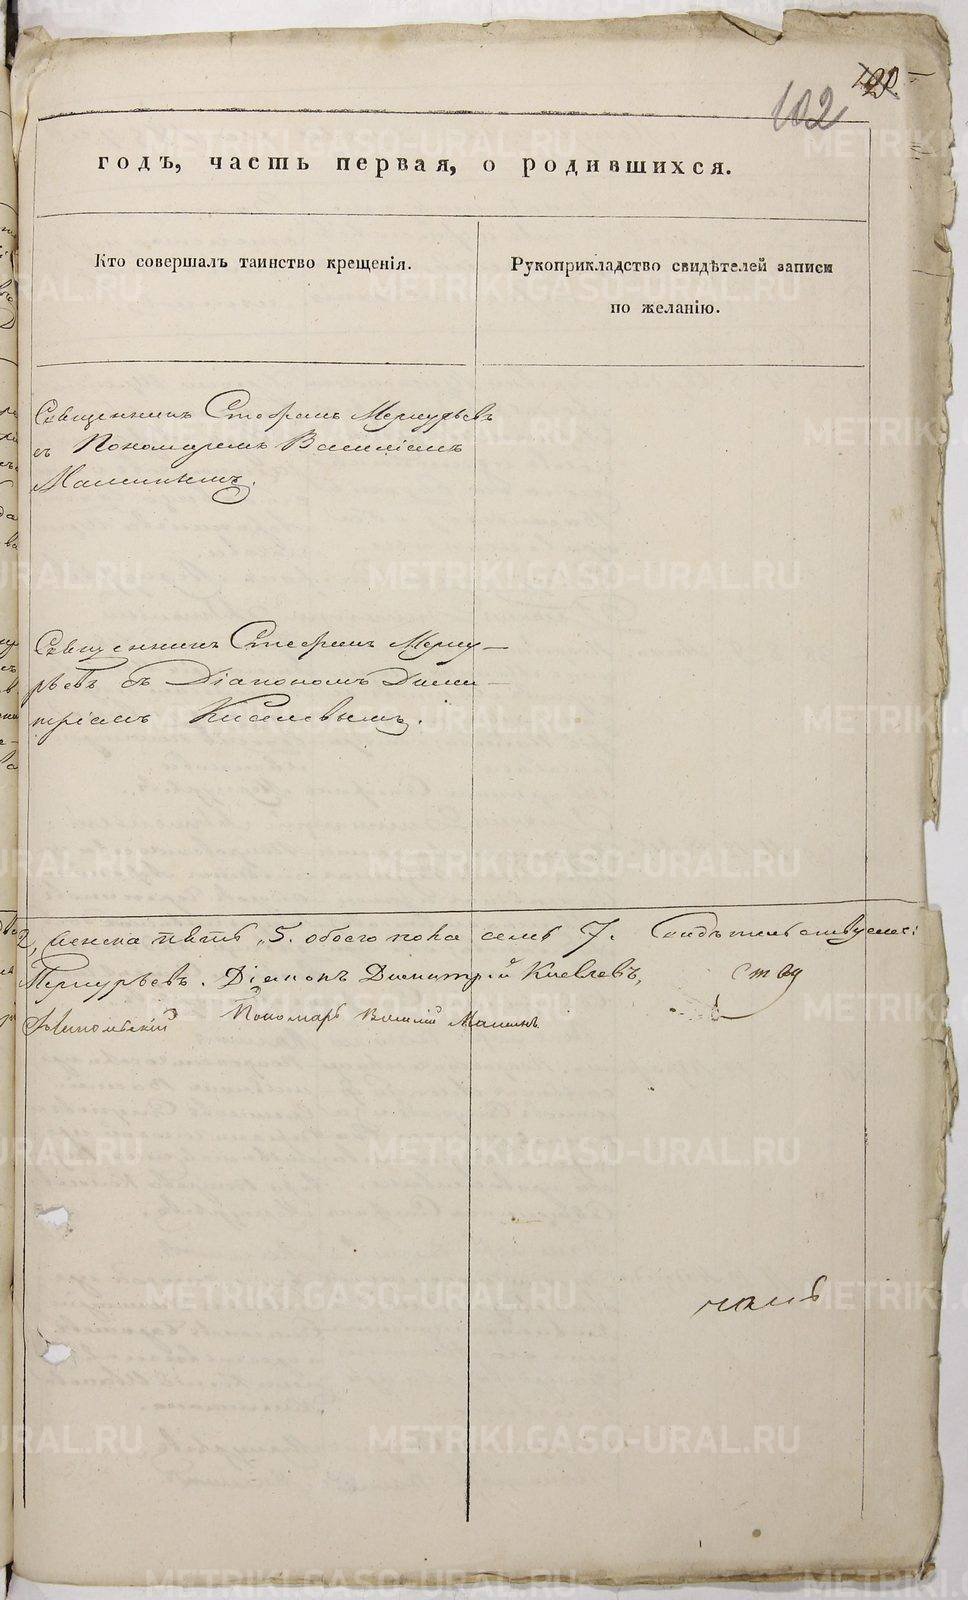 102
годъ, часть первая, о родившихся.
Кто совершалъ таинство крещенія.
Рукоприкладство свидѣтелей записи
по желанію.
Священникъ Стефанъ Меркурьевъ
съ Пономаремъ Василіемъ
Малининымъ.
Священникъ Стефанъ Мерку-
рьевъ съ Діакономъ Дими-
тріемъ Киселевымъ.
2, женска пять 5. обоего пола семь 7.
Меркурьевъ. Діаконъ Димитрій Киселевъ,
Пономарь Василій Малининъ
METRIKI.GASO-URAL.RU